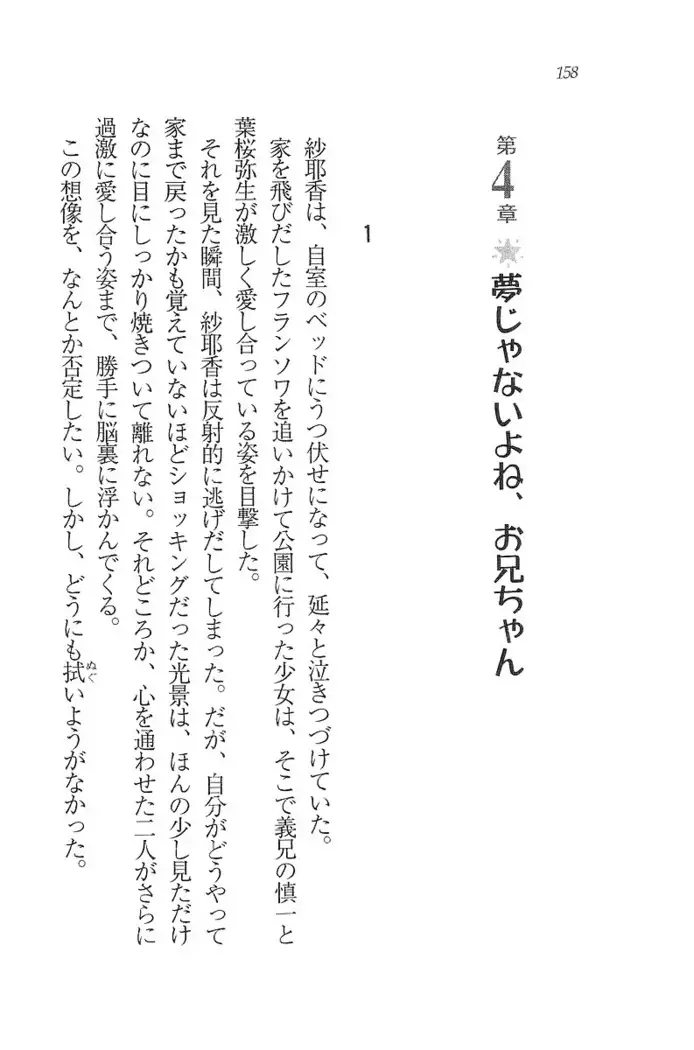 158
第4章 夢じゃないよね、お兄ちゃん
1
紗耶香は、自室のベッドにうつ伏せになって、延々と泣きつづけていた。
家を飛びだしたフランソワを追いかけて公園に行った少女は、そこで義兄の慎一と
葉桜弥生が激しく愛し合っている姿を目撃した。
それを見た瞬間、紗耶香は反射的に逃げだしてしまった。だが、自分がどうやって
家まで戻ったかも覚えていないほどショッキングだった光景は、ほんの少し見ただけ
なのに目にしっかり焼きついて離れない。それどころか、心を通わせた二人がさらに
過激に愛し合う姿まで、勝手に脳裏に浮かんでくる。
この想像を、なんとか否定したい。しかし、どうにも拭いようがなかった。
ぬぐ